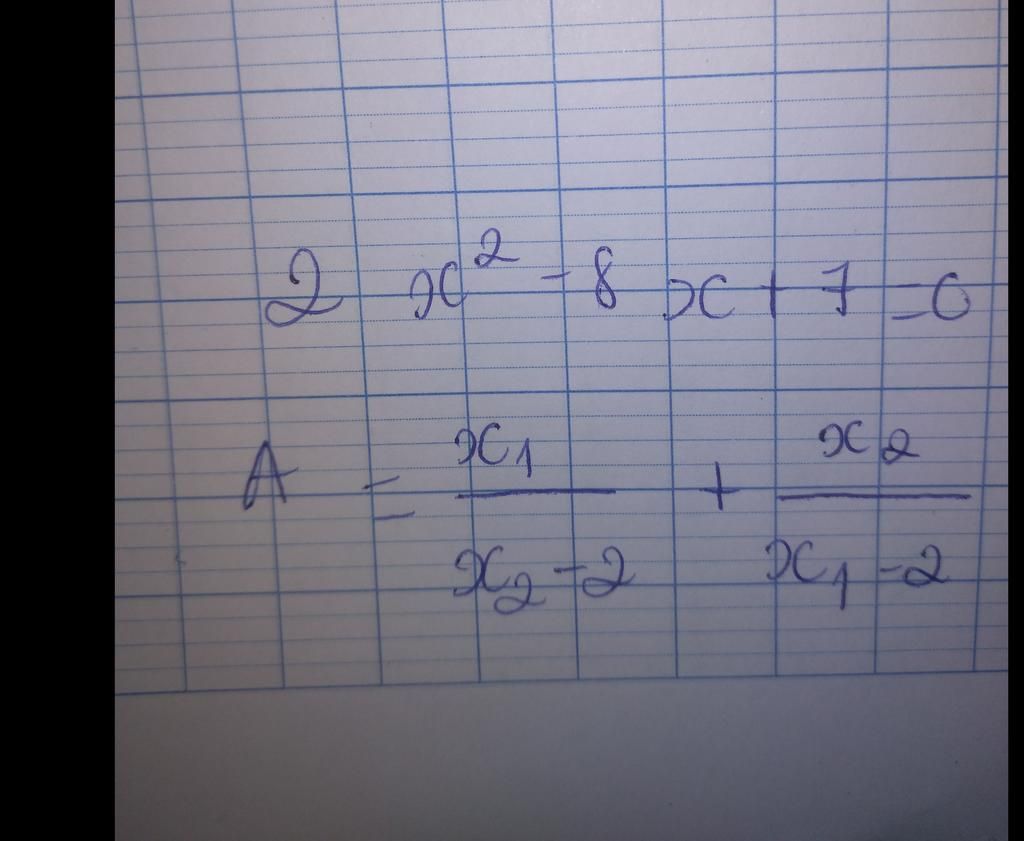 2 x² - 8 x + 7 = 0
A = x₁/(x₂ - 2) + x₂/(x₁ - 2)